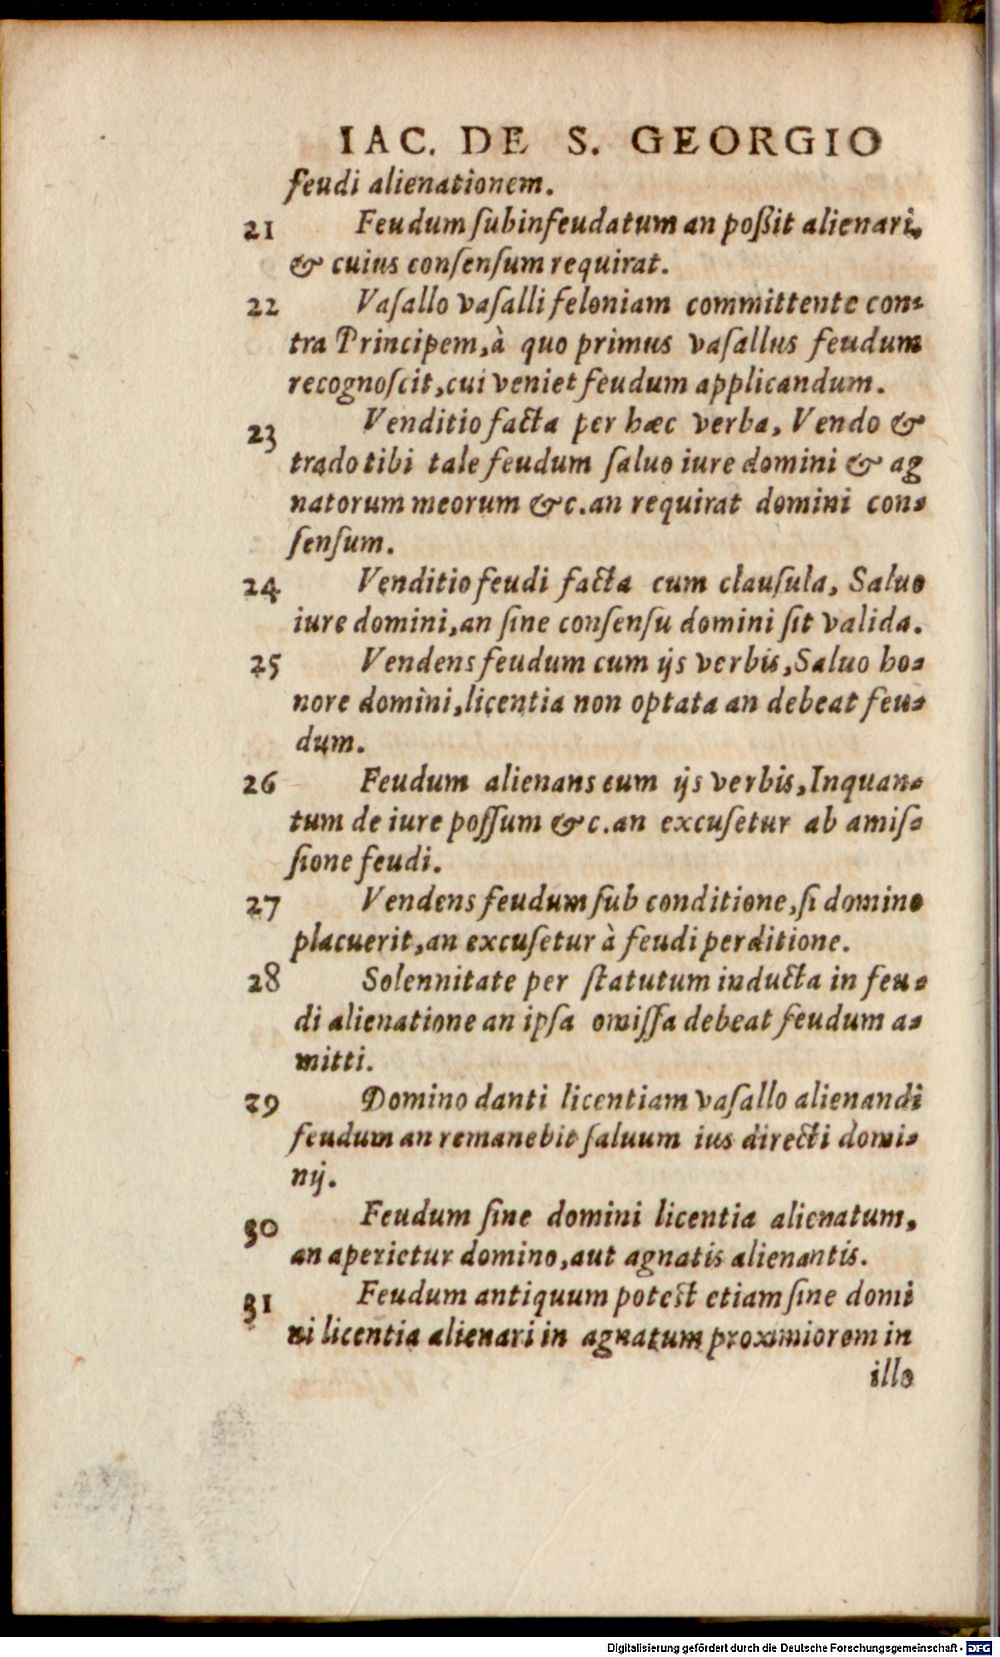 IAC. DE S. GEORGIO
feudi alienationem.
21 Feudum ſubinfeudatum an poßit alienari,
& cuius conſenſum requirat.
22 Vaſallo vaſalli feloniam committente con-
tra Principem, à quo primus vaſallus feudum
recognoſcit, cui veniet feudum applicandum.
23 Venditio facta per hæc verba, Vendo &
trado tibi tale feudum ſaluo iure domini & ag
natorum meorum &c. an requirat domini con-
ſenſum.
24 Venditio feudi facta cum clauſula, Saluo
iure domini, an ſine conſenſu domini ſit valida.
25 Vendens feudum cum ijs verbis, Saluo ho-
nore domini, licentia non optata an debeat feu-
dum.
26 Feudum alienans cum ijs verbis, Inquan-
tum de iure poſſum &c. an excuſetur ab amiſ-
ſione feudi.
27 Vendens feudum ſub conditione, ſi domino
placuerit, an excuſetur à feudi perditione.
28 Solennitate per ſtatutum inducta in feu-
di alienatione an ipſa omiſſa debeat feudum a-
mitti.
29 Domino danti licentiam vaſallo alienandi
feudum an remanebit ſaluum ius directi domi-
nij.
30 Feudum ſine domini licentia alienatum,
an aperietur domino, aut agnatis alienantis.
31 Feudum antiquum poteſt etiam ſine domi
ni licentia alienari in agnatum proximiorem in
illo
Digitalisierung gefördert durch die Deutsche Forschungsgemeinschaft - DFG